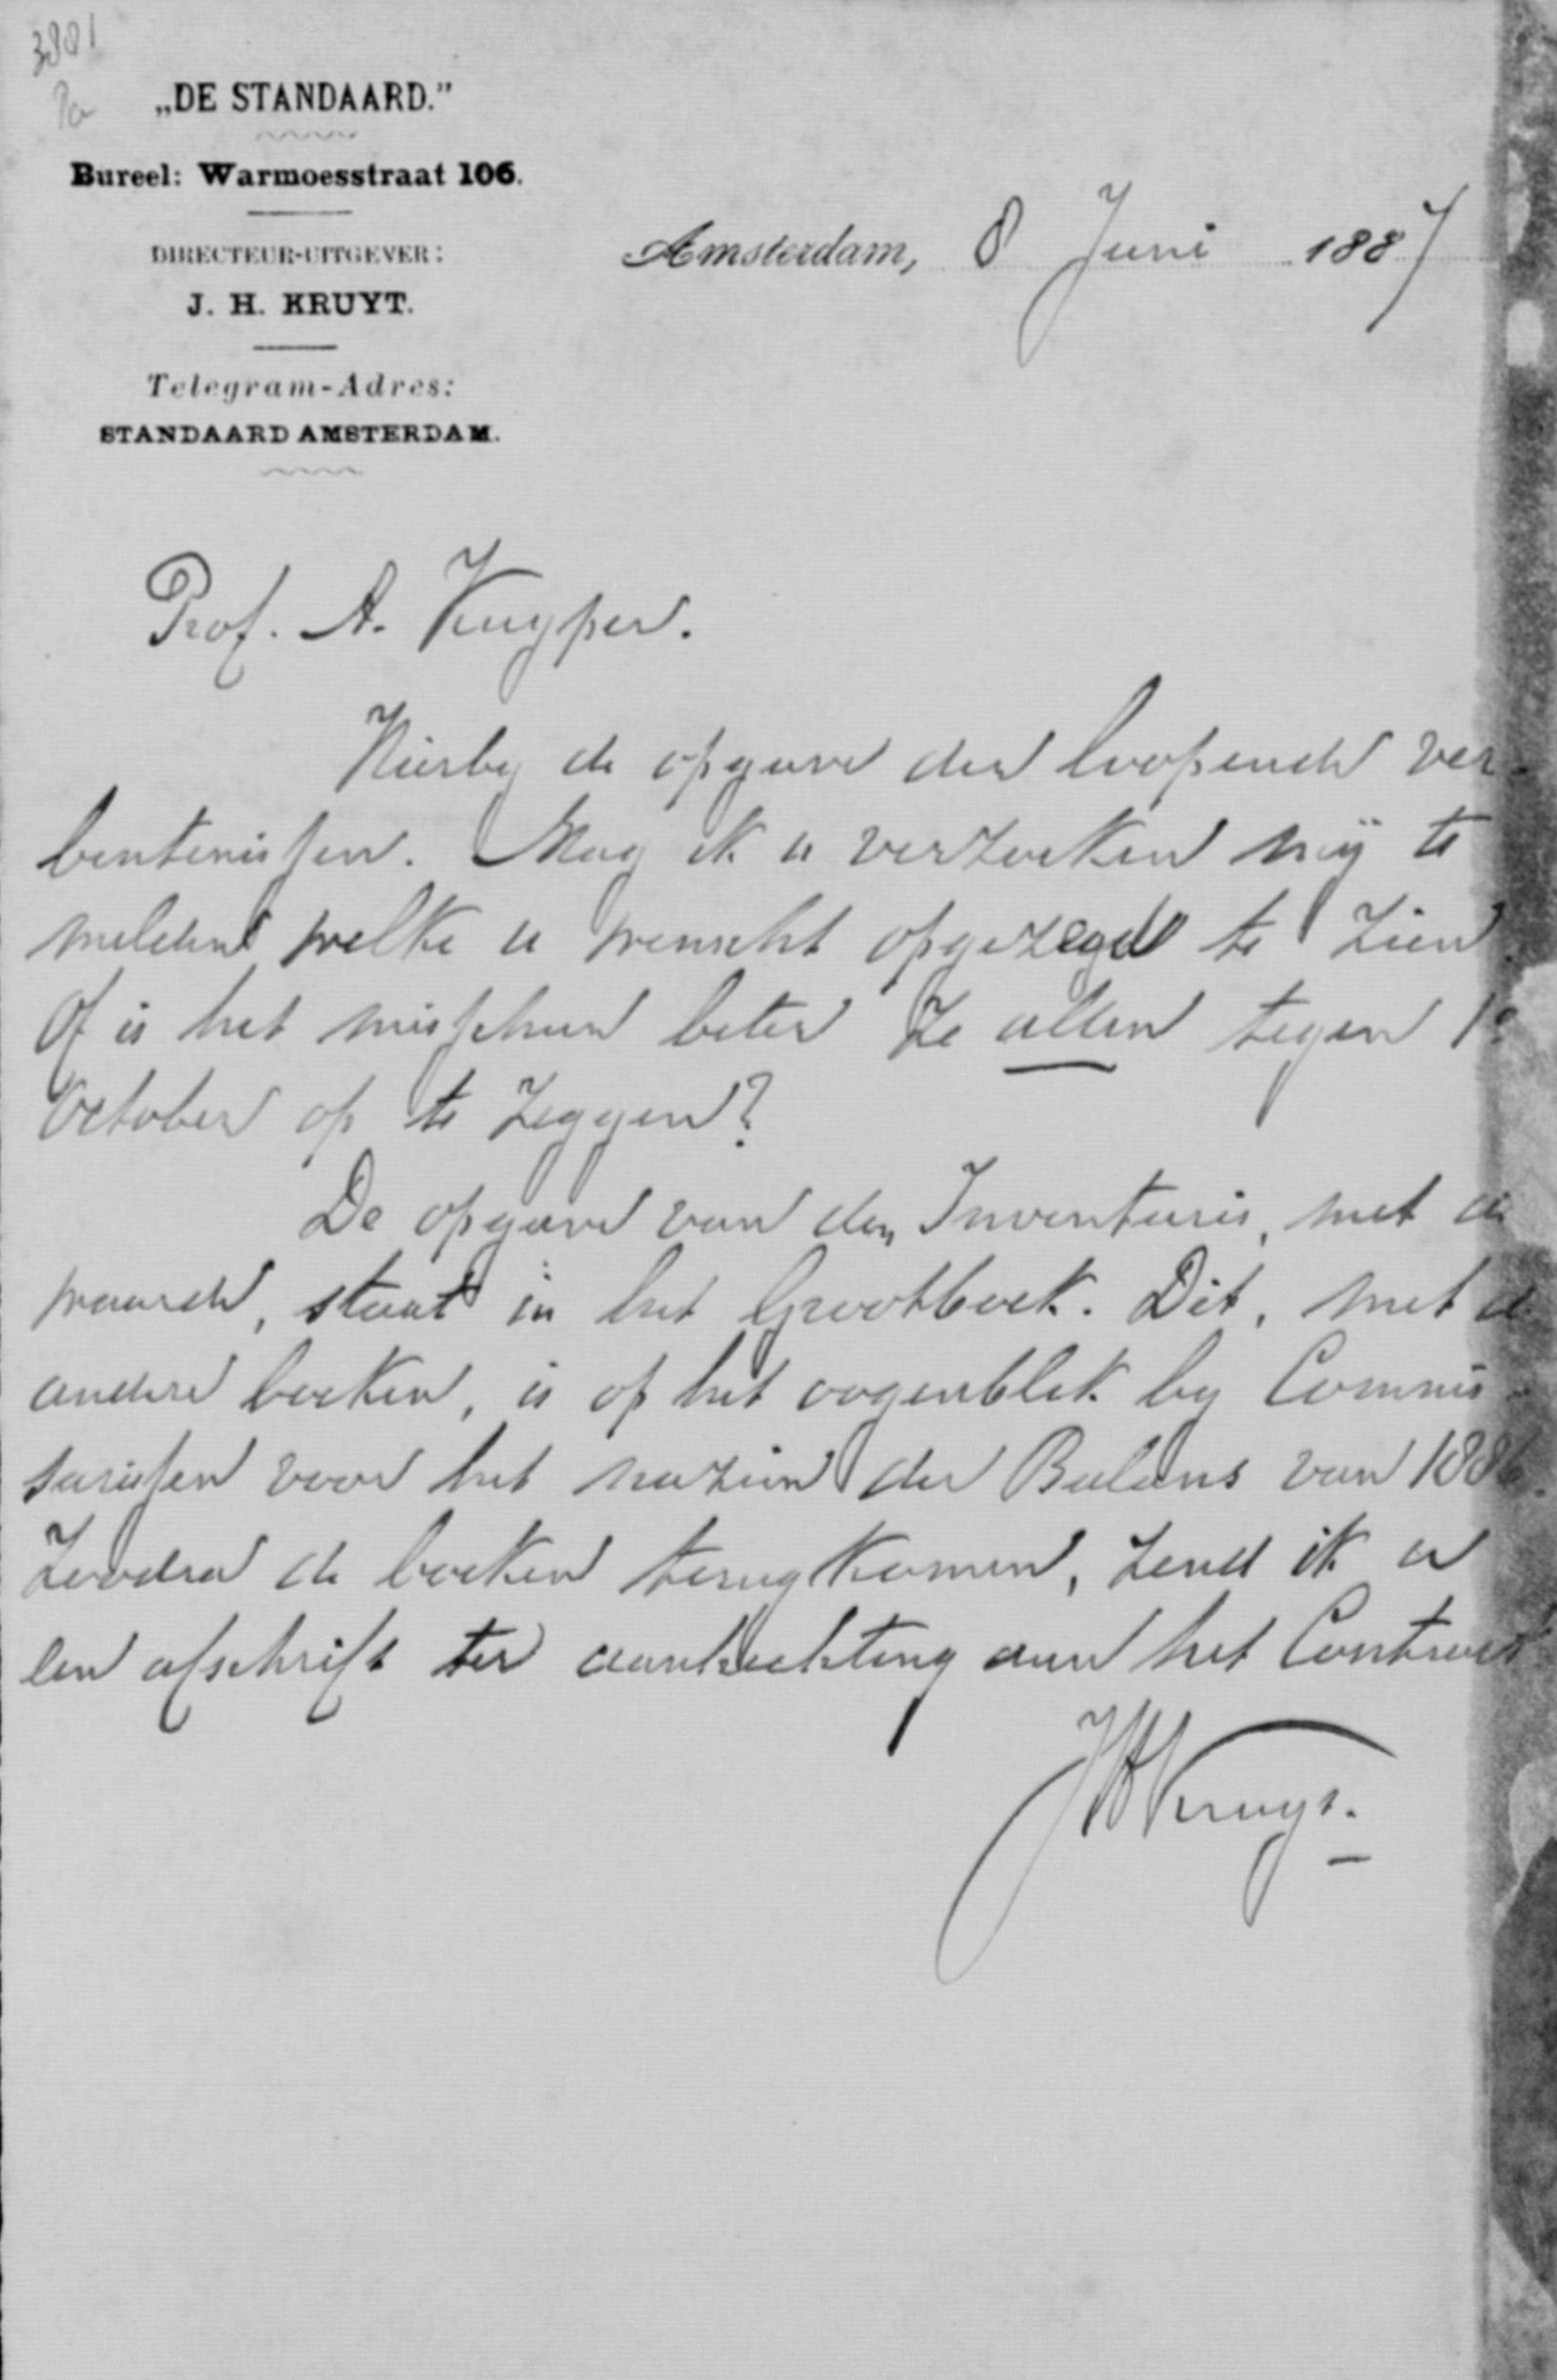 3881
„DE STANDAARD.”
Bureel: Warmoesstraat 106.
DIRECTEUR-UITGEVER:
J. H. KRUYT.
Telegram-Adres:
STANDAARD AMSTERDAM.
Amsterdam, 8 Juni 1887
Prof. A. Kuyper.
Hierby de opgave der loopende ver-
bentenissen. Mag ik u verzoeken mij te
melden welke u wenscht opgezegd te zien.
Of is het misschien beter ze allen tegen 1o
October op te zeggen?
De opgave van den Inventaris, met de
waarde, staat in het Grootboek. Dit, met de
andere boeken, is op het oogenblik by Commis-
sarissen voor het nazien der Balans van 1886.
Zoodra de boeken terugkomen, zend ik u
een afschrift ter aanhechting aan het Contract
JHKruyt.